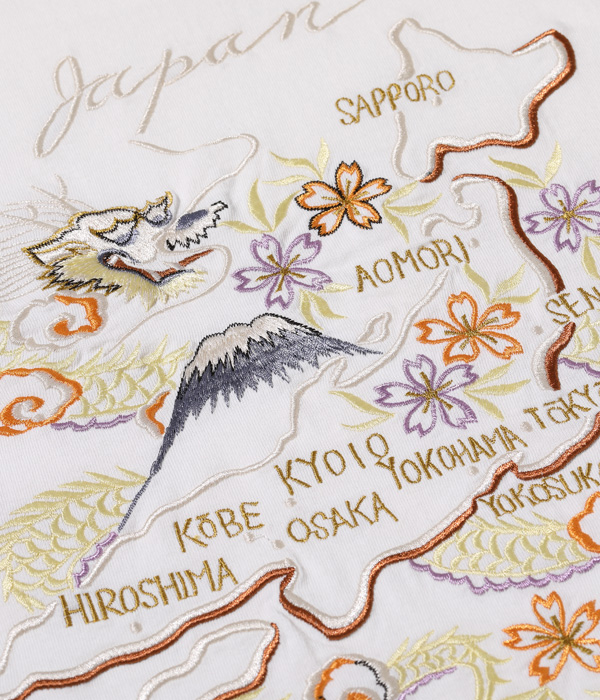 Japan
SAPPORO
AOMORI
SEN
TŌKYŌ
YOKOHAMA
KYOTO
YOKOSUKA
OSAKA
KŌBE
HIROSHIMA